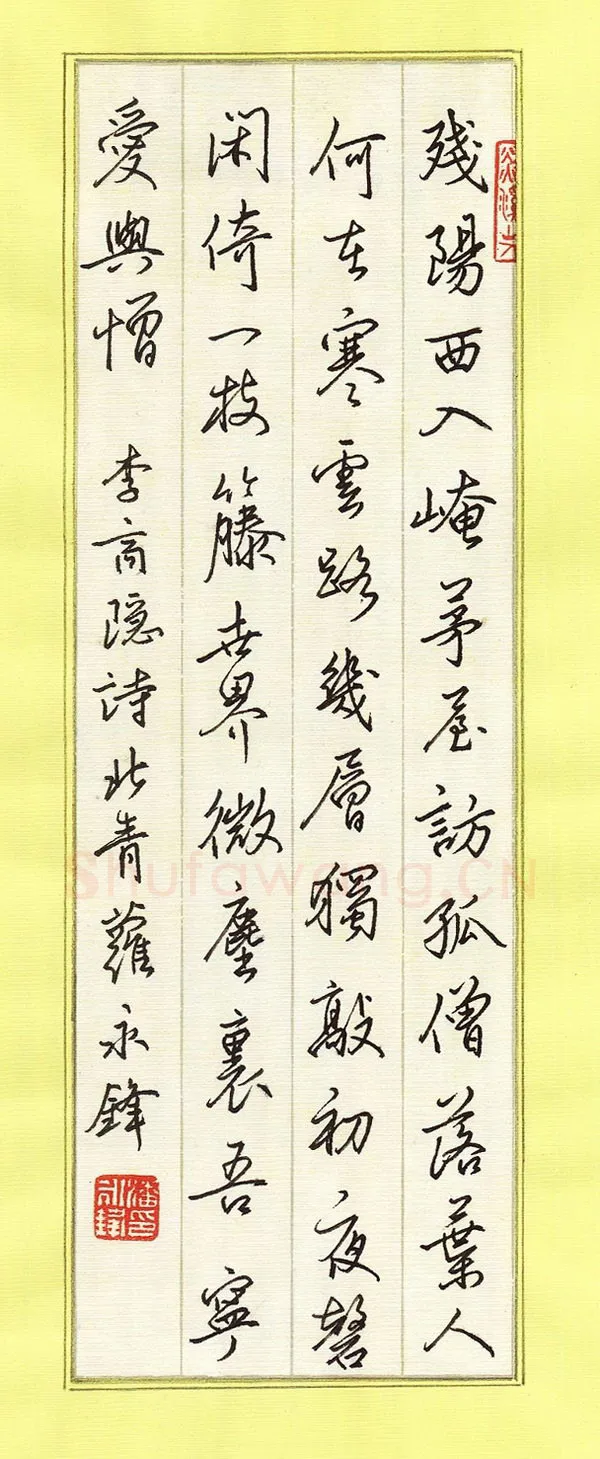 残陽西入崦茅屋訪孤僧落葉人
何在寒雲路幾層獨敲初夜磬
闲倚一枝籐世界微塵裏吾寧
愛與憎 李商隱詩北青蘿永鋒
潘永鋒印
Shufawang.CN